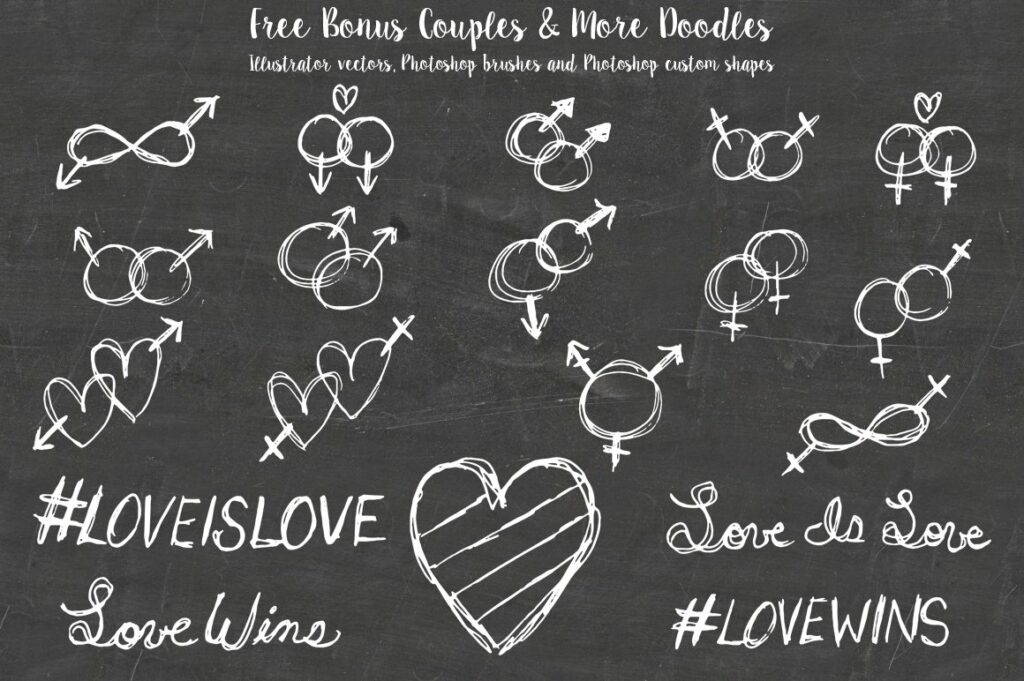 Free Bonus Couples & More Doodles
Illustrator vectors, Photoshop brushes and Photoshop custom shapes
#LOVEISLOVE
Love Is Love
Love Wins
#LOVEWINS